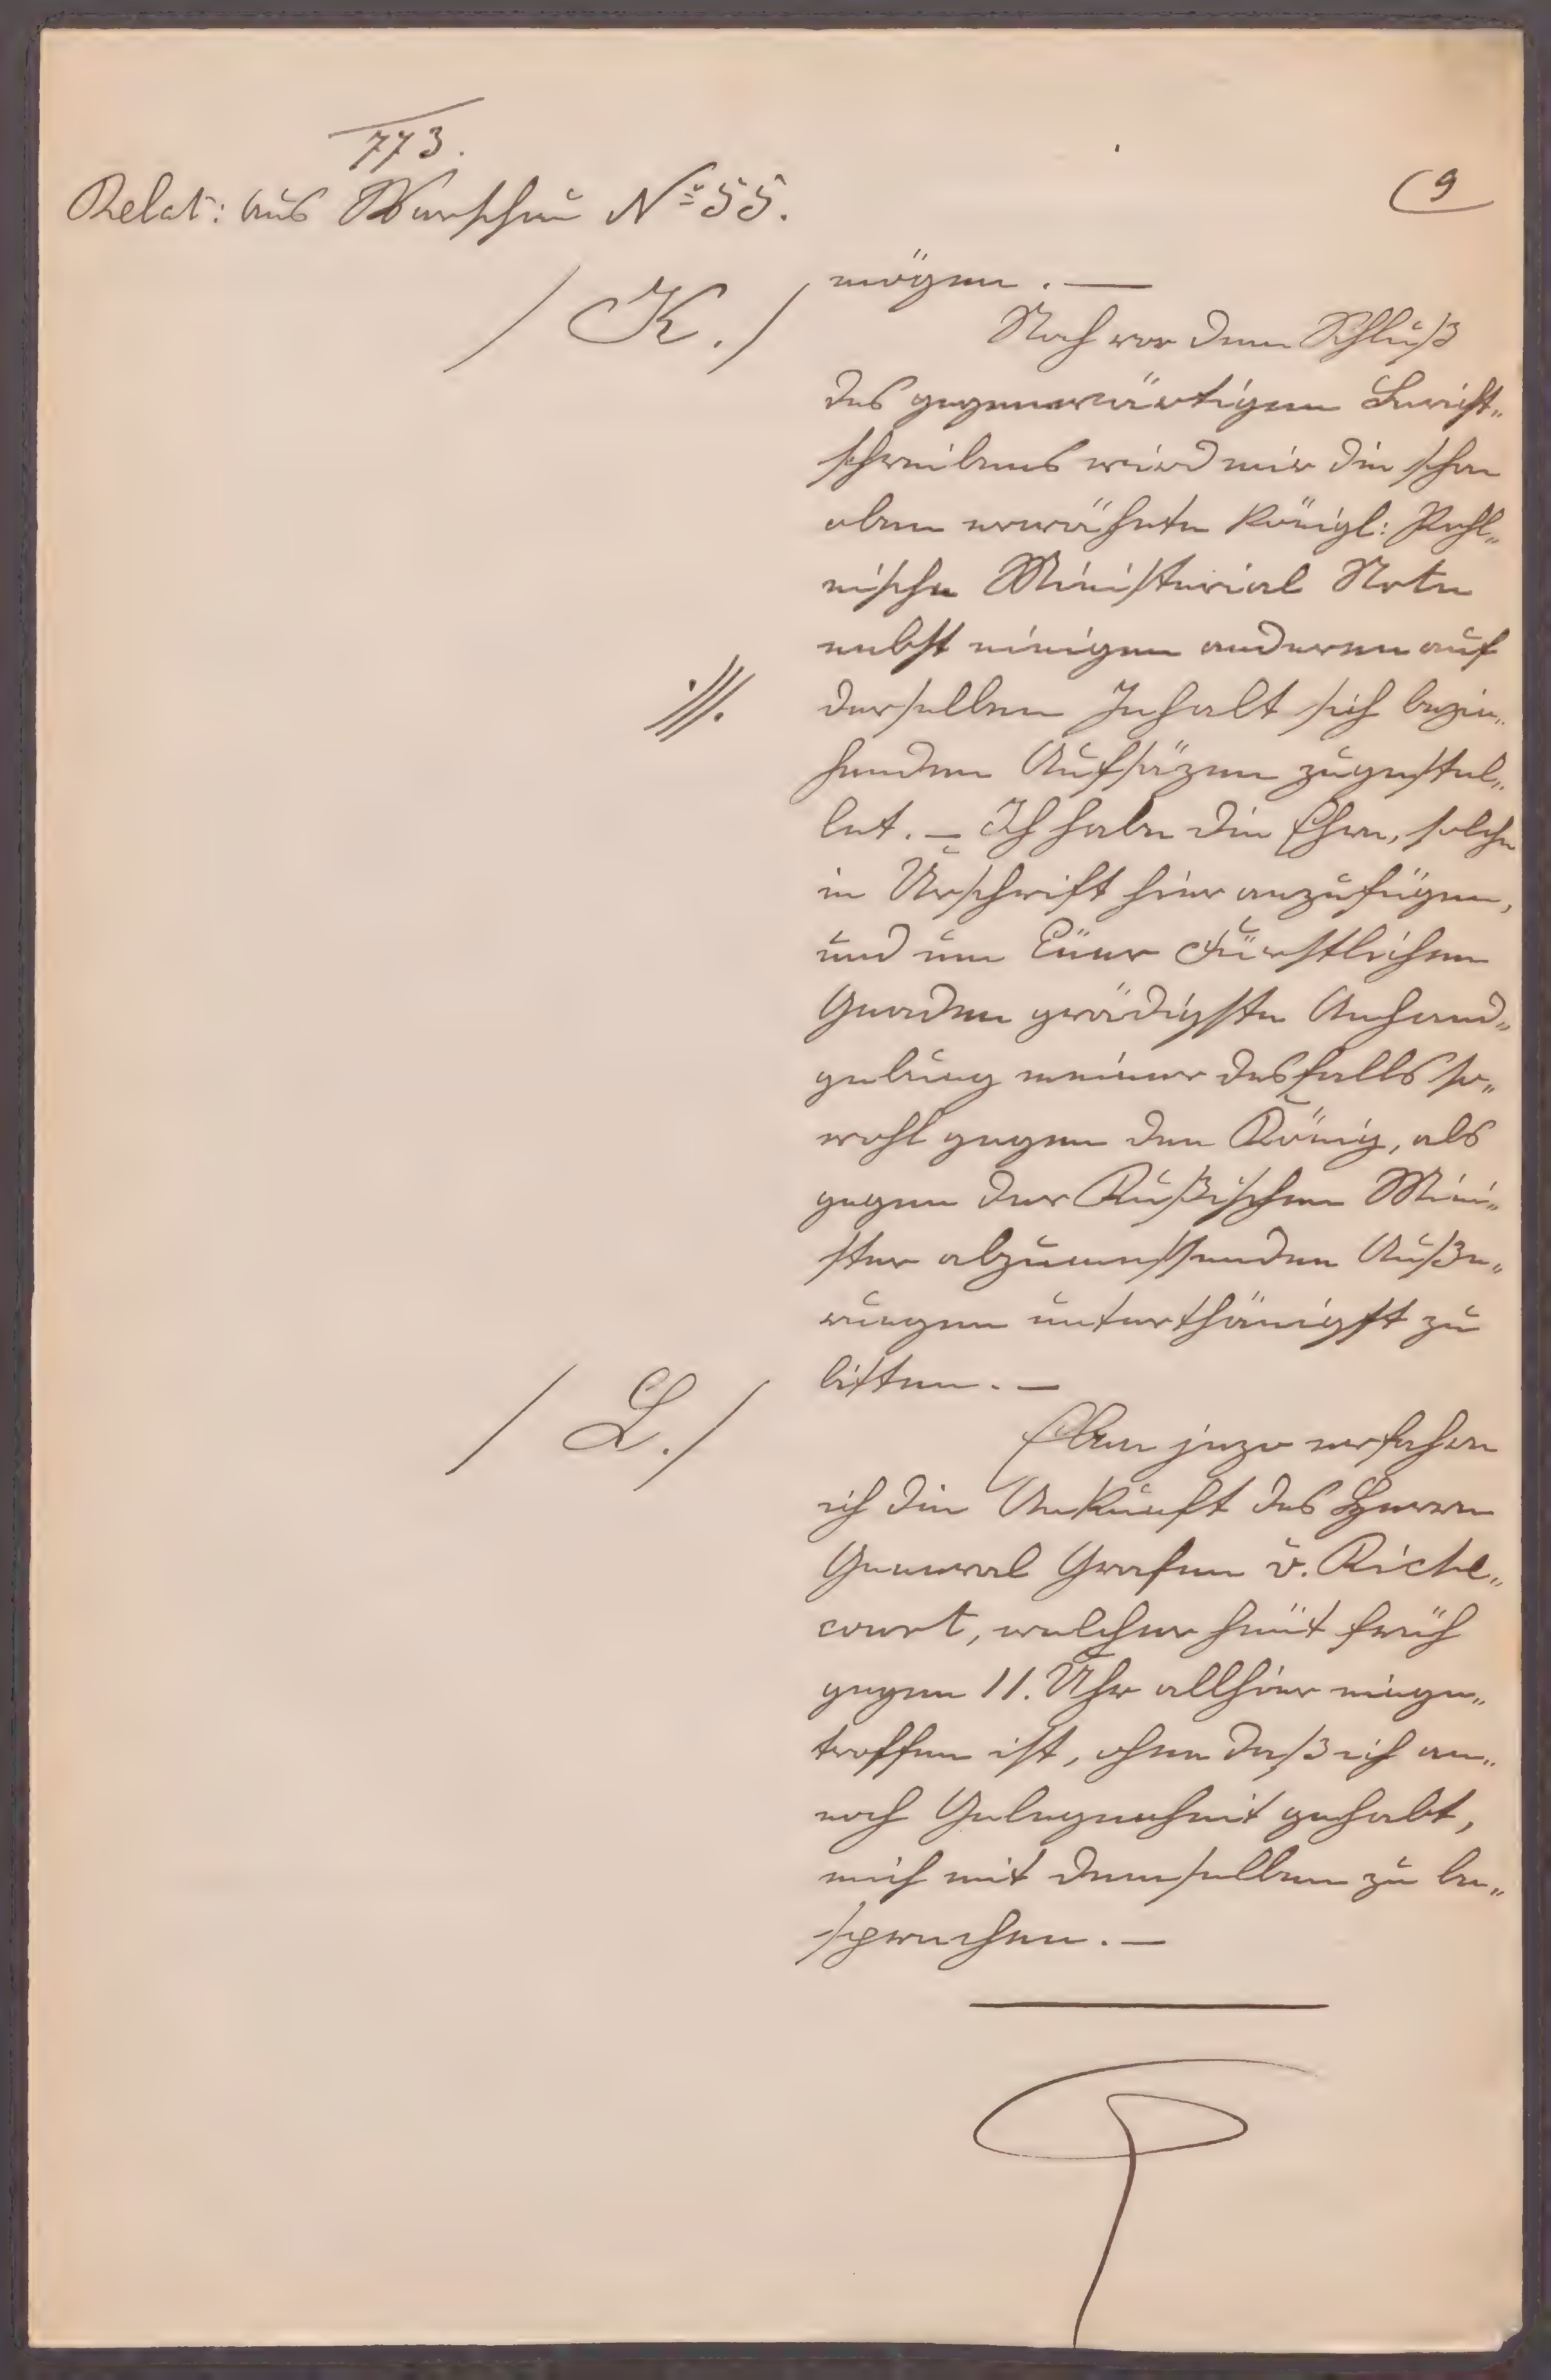 773.
Relat: aus Warschau No 55.
(9
/ K. /
mögen. —
Noch vor dem Schluß
des gegenwärtigen Bericht„
schreibens wird mir die schon
oben erwähnte Königl: Pohl„
nische Ministerial Note
nebst einigen anderen auf
derselben Inhalt sich bezie„
·///.
henden Aufsäzen zugestel„
let. — Ich habe die Ehre, solche
in Urschrift hier anzufügen,
und um Eüer Fürstlichen
Gnaden gnädigste Anhand„
gebung meiner desfalls so„
wohl gegen den König, als
gegen der Rußischen Mini„
ster abzumessenden Auße„
rungen unterthänigst zu
bitten. —
/ L. /
Eben jezo erfahre
ich die Ankunft des Herrn
General Grafen v. Riche„
court, welcher heüt früh
gegen 11. Uhr allhier einge„
troffen ist, ohne daß ich an„
noch Gelegenheit gehabt,
mich mit demselben zu be„
sprechen. —